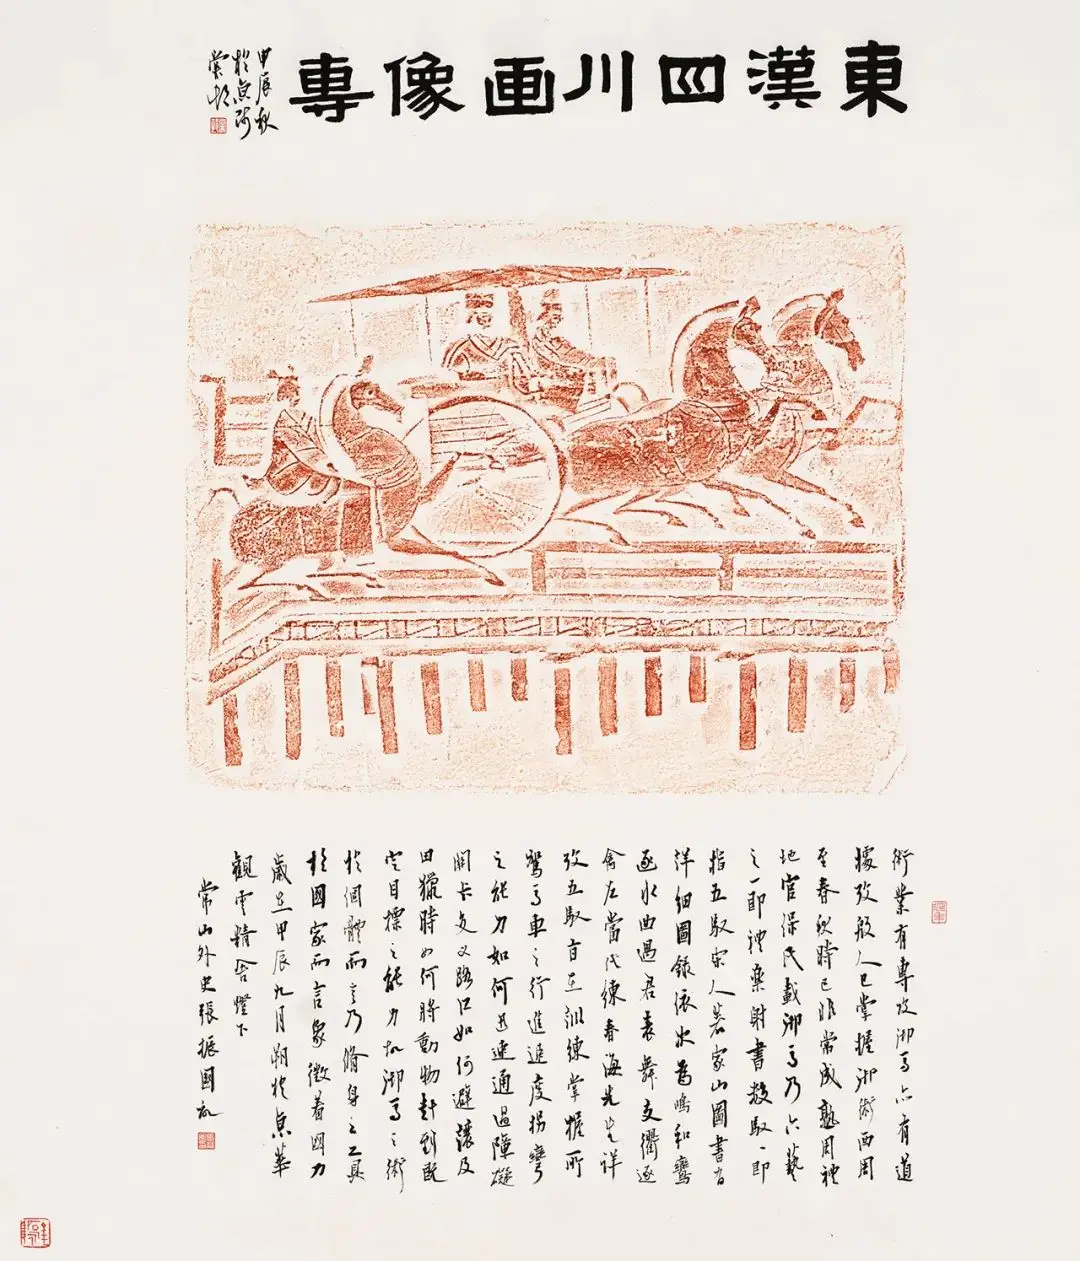 東漢四川画像專
甲辰秋
於京
術業有專攻御馬亦有道
據攷殷人已掌握御術西周
至春秋時已非常成熟周禮
地官保氏載御馬乃六藝
之一即禮樂射書數馭一即
指五馭宋人箸家山圖書有
詳細圖錄依次為鳴和鸞
逐水曲過君表舞交衢逐
禽左當代練春海先生詳
攷五馭旨在訓練掌握所
駕馬車之行進速度拐彎
之能力如何迅速通過障礙
關卡交叉路口如何避讓及
田獵時如何將動物趕到既
定目標之能力御馬之術
於個體而言乃脩身之工具
於國家而言象徵着國力
歲在甲辰九月朔於京華
觀雲精舍燈下
常山外史張振國記